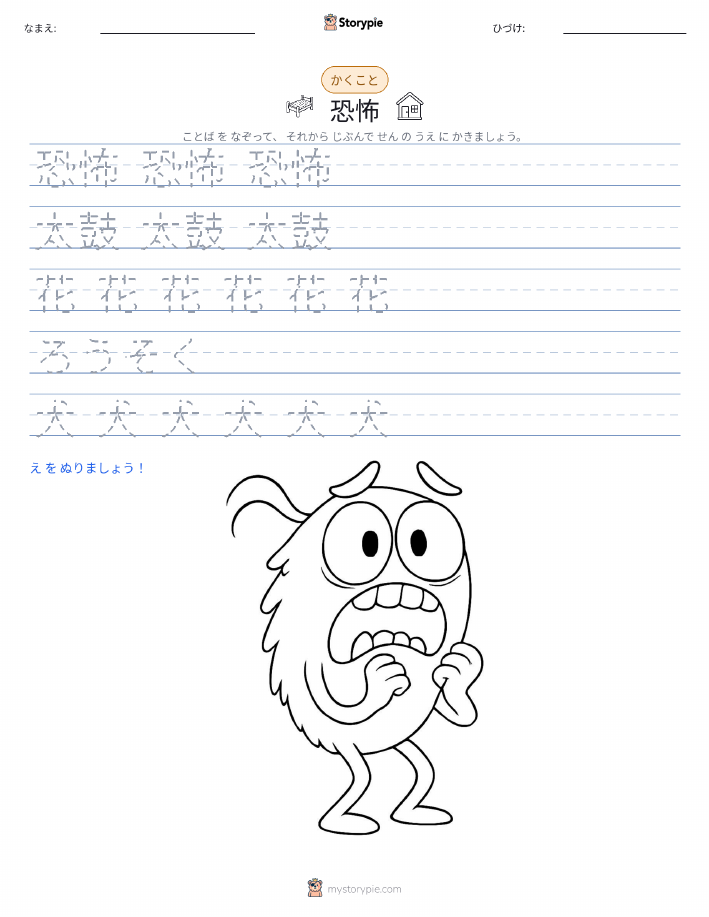 なまえ:
Storypie
ひづけ:
かくこと
恐怖
ことば を なぞって、 それから じぶんで せん の うえ に かきましょう。
恐怖 恐怖 恐怖
太鼓 太鼓 太鼓
花 花 花 花 花 花
ろうそく
犬 犬 犬 犬 犬 犬
え を ぬりましょう！
mystorypie.com